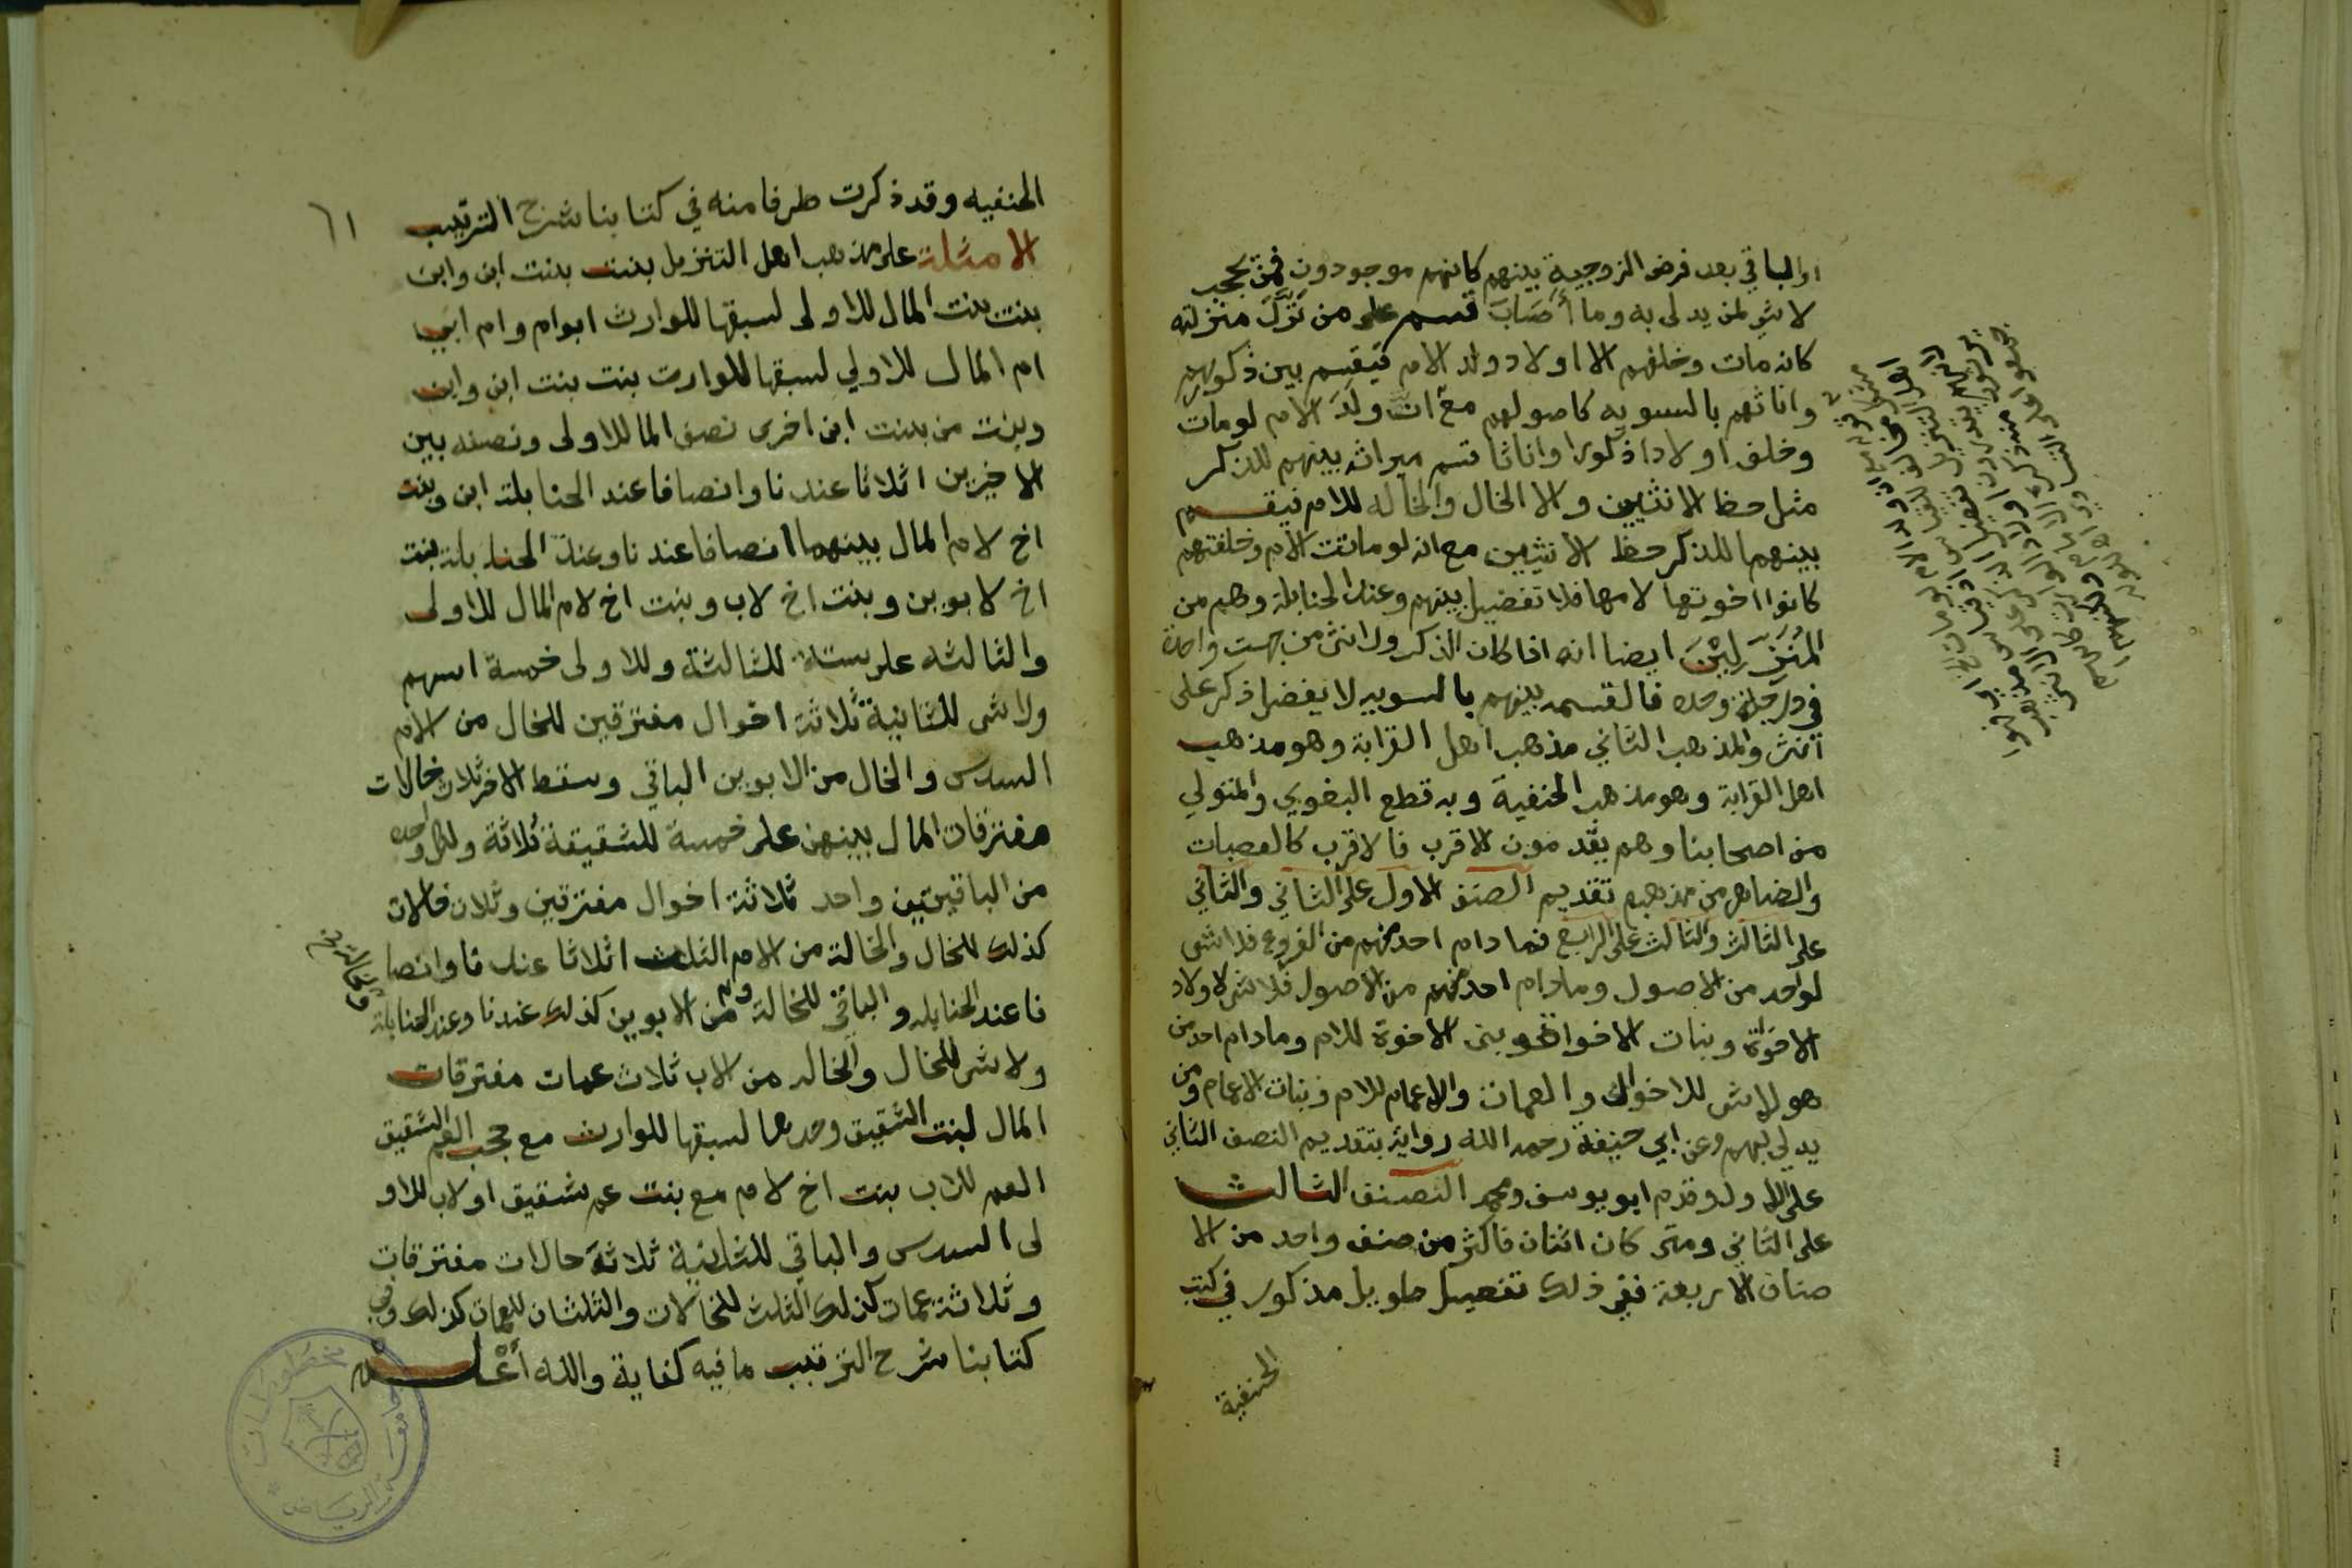 او الباقي بعد فرض الزوجية بينهم كانهم موجودون فمن يحجب
لا شي لمن يدلى به وما أصَابَ قسم على من نَزَّلَ منزلته
كانه مات وخلفهم الا اولاد ولد الام فيقسم بين ذكورهم
واناثهم بالسويه كاصولهم مع انّ ولَدَ الام لو مات
وخلف اولادا ذكورا واناثا قسم ميراثه بينهم للذكر
مثل حظ الانثيين والا الخال والخاله للام فيقسم
بينهما للذكر حظ الانثيين مع انه لو ماتت الأم وخلفتهم
كانوا اخوتها لامها فلا تفضيل بينهم وعند الحنابلة وهم من
المُنَزِّلِيْنَ ايضا انه اذا كان الذكر والانثى من جهت واحدة
في درجة وحده فالقسمه بينهم بالسويه لا يفضل ذكر على
انثى والمذهب الثاني مذهب اهل القرابة وهو مذهب
اهل القرابة وهو مذهب الحنفية وبه قطع البغوي والمتولي
من اصحابنا وهم يقدمون الاقرب فالاقرب كالعصبات
والضاهر من مذهبهم تقديم الصنف الاول على الثاني والثاني
على الثالث والثالث على الرابع فما دام احد منهم من الفروع فلا شي
لواحد من الاصول ومادام احد منهم من الاصول فلا شي لاولاد
الاخوة وبنات الاخوا نحو بنى الاخوة للام ومادام احد من
هو لا شي للاخوال والعمات والاعمام للام وبنات الاعمام ومن
يدلى بهم وعن ابي حنيفة رحمه الله رواية بتقديم النصف الثاني
على الاول وقدم ابو يوسف ومحمد النصنف الثالث
على الثاني ومتى كان اثنان فاكثر من صنف واحد من الا
صناف الاربعة ففي ذلك تفصيل طويل مذكور في كتب
الحنفية
٦١
الحنفيه وقد ذكرت طرفا منه في كتابنا شرح الترتيب
الامثلة على مذهب اهل التنزيل بنت بنت ابن وابن
بنت بنت المال للاولى لسبقها للوارث ابوام وام ابي
ام المال للاولى لسبقها للوارث بنت بنت ابن وابن
وبنت من بنت ابن اخرى نصف المال للاولى ونصفه بين
الاخيرين اثلاثا عندنا وانصافا عند الحنابلة ابن وبنت
اخ لام المال بينهما انصافا عندنا وعند الحنابلة بنت
اخ لابوين وبنت اخ لاب وبنت اخ لام المال للاولى
والثالثه على ستة للثالثة وللاولى خمسة اسهم
ولا شى للثانية ثلاثة اخوال مفترقين للخال من الام
السدس والخال من الابوين الباقي وسقط الاخر ثلاث خالات
مفترقات المال بينهن على خمسة للشقيقة ثلاثة ولكل واحده
من الباقيتين واحد ثلاثة اخوال مفترقين وثلاث خالات
كذلك للخال والخالة من الام الثلث اثلاثا عندنا وانصا
فا عند الحنابله والباقي للخالة من الابوين كذلك عندنا وعند الحنابلة
ولا شى للخال والخاله من الاب ثلاث عمات مفترقات
المال لبنت الشقيق وحدها لسبقها للوارث مع حجب العم الشقيق
العم للاب بنت اخ لام مع بنت عم شقيق او لاب للاو
لى السدس والباقي للثانية ثلاثة خالات مفترقات
وثلاثة عمات كذلك الثلث للخالات والثلثان للعمات كذلك وفي
كتابنا شرح الترتيب ما فيه كفاية والله أعْلم
مخطوطات
جامعة الرياض